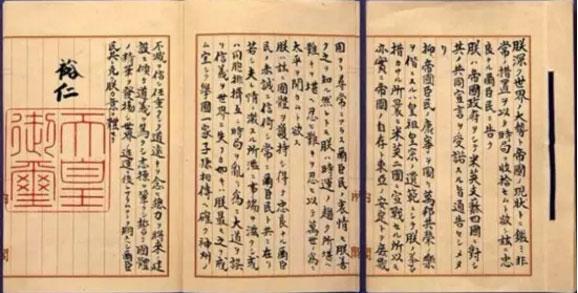 朕深ク世界ノ大勢ト帝國ノ現狀トニ鑑ミ非
常ノ措置ヲ以テ時局ヲ收拾セムト欲シ茲ニ忠
良ナル爾臣民ニ告ク
朕ハ帝國政府ヲシテ米英支蘇四國ニ對シ
其ノ共同宣言ヲ受諾スル旨通告セシメタ
リ
抑〻帝國臣民ノ康寧ヲ圖リ萬邦共榮ノ樂
ヲ偕ニスルハ皇祖皇宗ノ遺範ニシテ朕ノ拳々
措カサル所曩ニ米英二國ニ宣戰セル所以モ
亦實ニ帝國ノ自存ト東亞ノ安定トヲ庶幾
固ヨリ尋常ニアラス爾臣民ノ衷情モ朕善
ク之ヲ知ル然レトモ朕ハ時運ノ趨ク所堪ヘ
難キヲ堪ヘ忍ヒ難キヲ忍ヒ以テ萬世ノ爲ニ
太平ヲ開カムト欲ス
朕ハ茲ニ國體ヲ護持シ得テ忠良ナル爾臣
民ノ赤誠ニ信倚シ常ニ爾臣民ト共ニ在リ
若シ夫レ情ノ激スル所濫ニ事端ヲ滋クシ或
ハ同胞排擠互ニ時局ヲ亂リ爲ニ大道ヲ誤
リ信義ヲ世界ニ失フカ如キハ朕最モ之ヲ戒
ム宜シク擧國一家子孫相傳ヘ確ク神州ノ
不滅ヲ信シ任重クシテ道遠キヲ念ヒ總力ヲ將來ノ建
設ニ傾ケ道義ヲ篤クシ志操ヲ鞏クシ誓テ國體
ノ精華ヲ發揚シ世界ノ進運ニ後レサラムコトヲ期スヘシ爾臣
民其レ克ク朕カ意ヲ體セヨ
裕仁
天皇
御璽